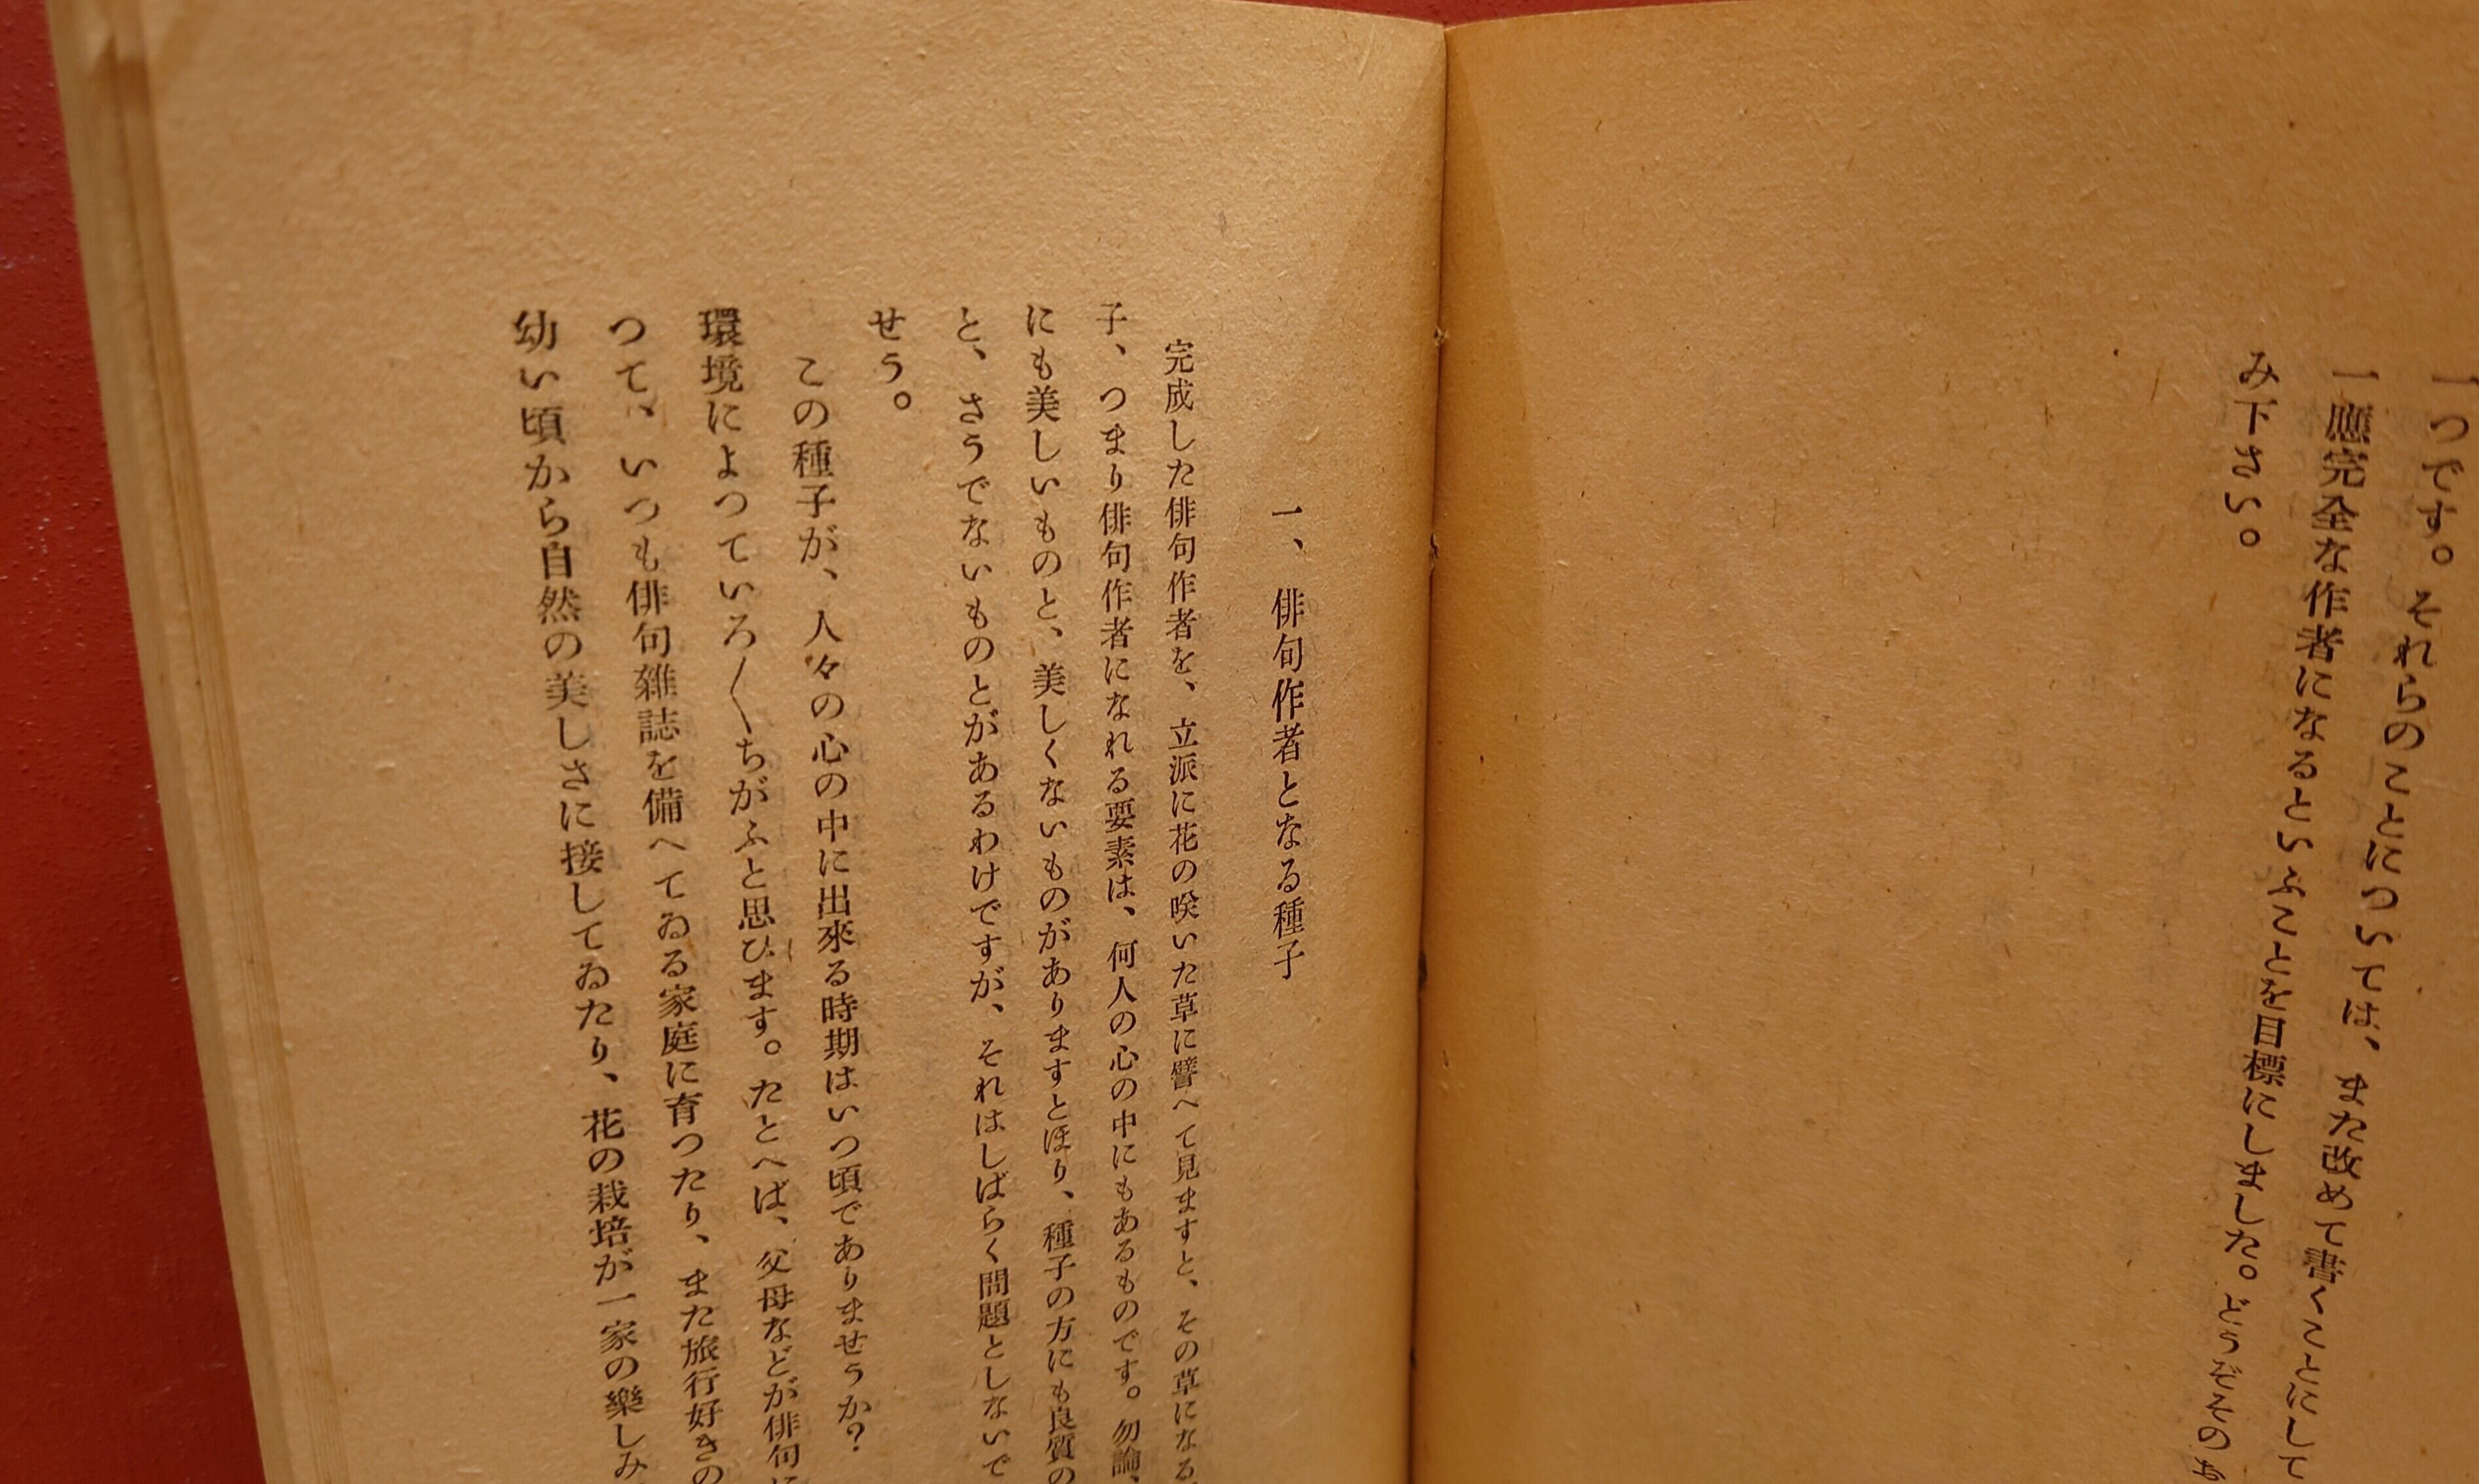 一つです。それらのことについては、また改めて書くことにして
一應完全な作者になるといふことを目標にしました。どうぞそのお
み下さい。
一、俳句作者となる種子
完成した俳句作者を、立派に花の咲いた草に譬へて見ますと、その草になる
子、つまり俳句作者になれる要素は、何人の心の中にもあるものです。勿論、
にも美しいものと、美しくないものがありますとほり、種子の方にも良質の
と、さうでないものとがあるわけですが、それはしばらく問題としないで
せう。
この種子が、人々の心の中に出來る時期はいつ頃でありませうか?
環境によつていろ〱ちがふと思ひます。たとへば、父母などが俳句に
つて、いつも俳句雜誌を備へてゐる家庭に育つたり、また旅行好きの
幼い頃から自然の美しさに接してゐたり、花の栽培が一家の樂しみ